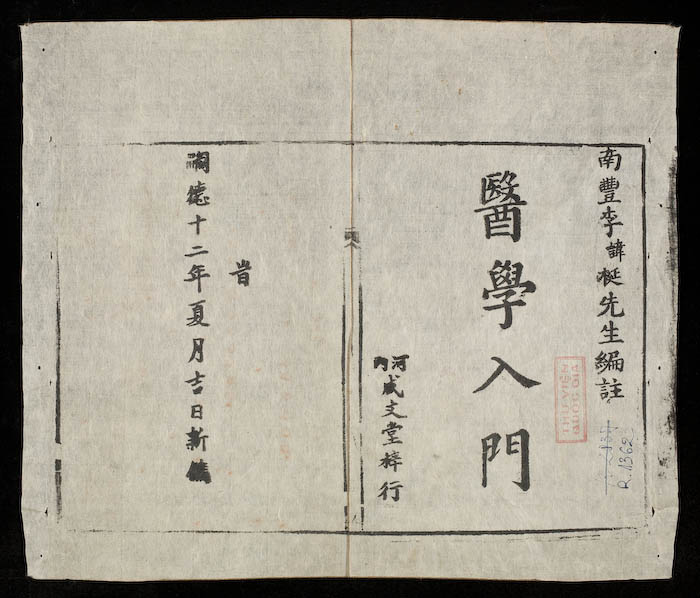 南豐李諱梴先生編註
醫學入門
河內
成文堂梓行
嗣德十二年夏月吉日新鐫
THƯ VIỆN
QUỐC GIA
R.1362